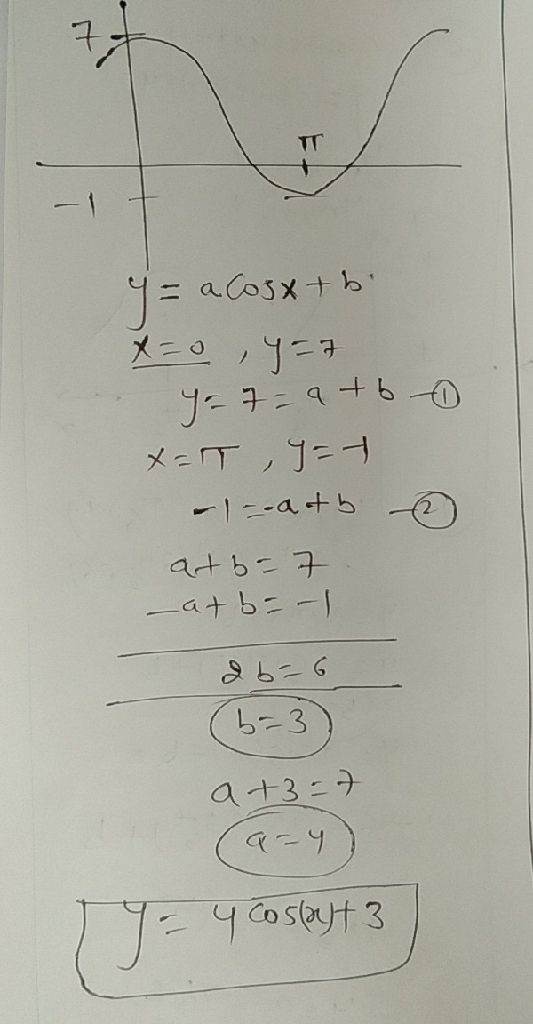 7
π
-1
y = a cosx + b
x=0 , y=7
y=7=a+b -①
x=π , y=-1
-1=-a+b -②
a+b=7
-a+b=-1
2b=6
b=3
a+3=7
a=4
y = 4 cos(x)+3